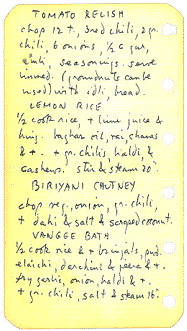 TOMATO RELISH
chop 12 t., 3 red chili, 2 gr.
chili, 6 onions, 1/2 c gur,
seasonings. serve
(groundnuts can be
used) with idli, bread.
LEMON RICE
1/2 cook rice, + lime juice &
hing. baghar oil, rai, channa
& +. + gr. chilis, haldi, &
cashews. stir & steam 20".
BIRIYANI CHUTNEY
chop veg, onion, gr. chili,
+ dahi & salt & scraped coconut.
VANGEE BATH
1/2 cook rice & + brinjals, pwd.
elaichi, darchini & jeera & +.
fry garlic, onion, haldi & +.
+ gr. chili, salt & steam 15".